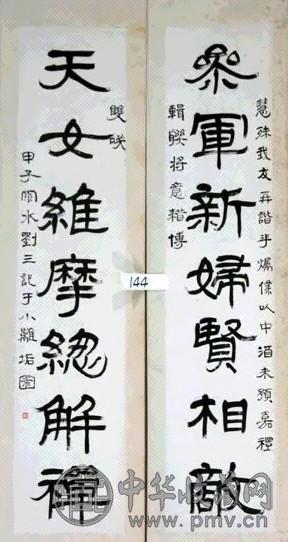 慧殊我友再諧僕以中酒未預嘉禮
參軍新婦賢相敵
輯聯將意藉博
雙咲
天女維摩緫解禪
甲子雨水劉三記于小離垢園
144
中华收藏网
www.pmv.cn